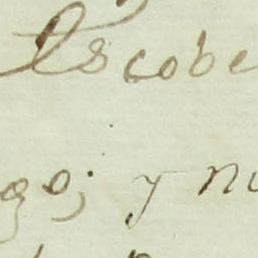 Escobe
go; y nu